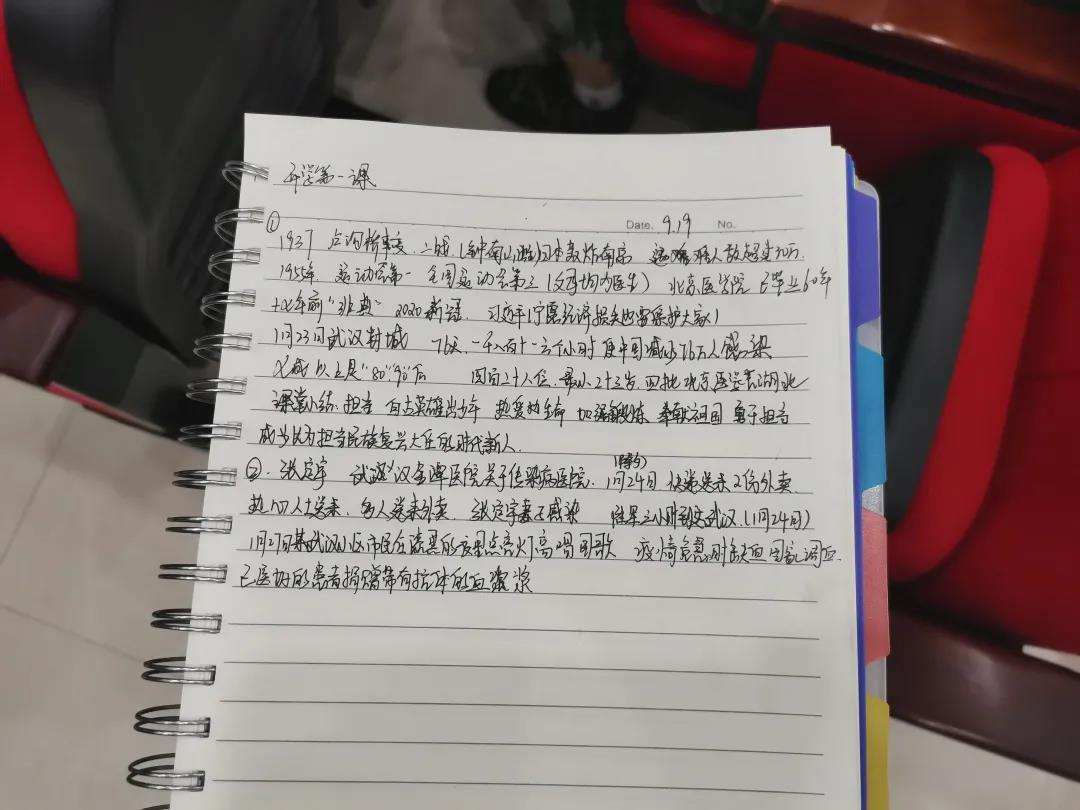 开学第一课
Date. 9.19 No.
①
1937 卢沟桥事变. 二战 (钟南山 日本轰炸南京 遇难人数超过30万.
1955年 运动会第一 全国运动会第三 (父母均为医生) 北京医学院 已毕业60年
十七年前"非典" 2020新冠. 习近平(宁愿经济损失也要保护大家)
1月23日武汉封城 76天. 一千八百一十六个小时 使中国减少76万人感染
以上是"80"."90"后 四百二十八位. 最小二十三岁. 四批 北京医学 湖北
课堂小练. 担当 自古英雄出少年 热爱生命 加强锻炼 奉献祖国 勇于担当
成为担当民族复兴大任的时代新人.
② 张定宇 武汉金牌医院关于传染病医院. 1月24日 (除夕) 快递送来2份外卖.
热心人士送来. 多人送来外卖. 张定宇妻子感染 武汉. (1月24日)
1月27日某武汉小区市民在漆黑的夜里点亮灯高唱国歌 疫情 时缺血 国家调血.
已医好的患者捐赠带有抗体的血浆